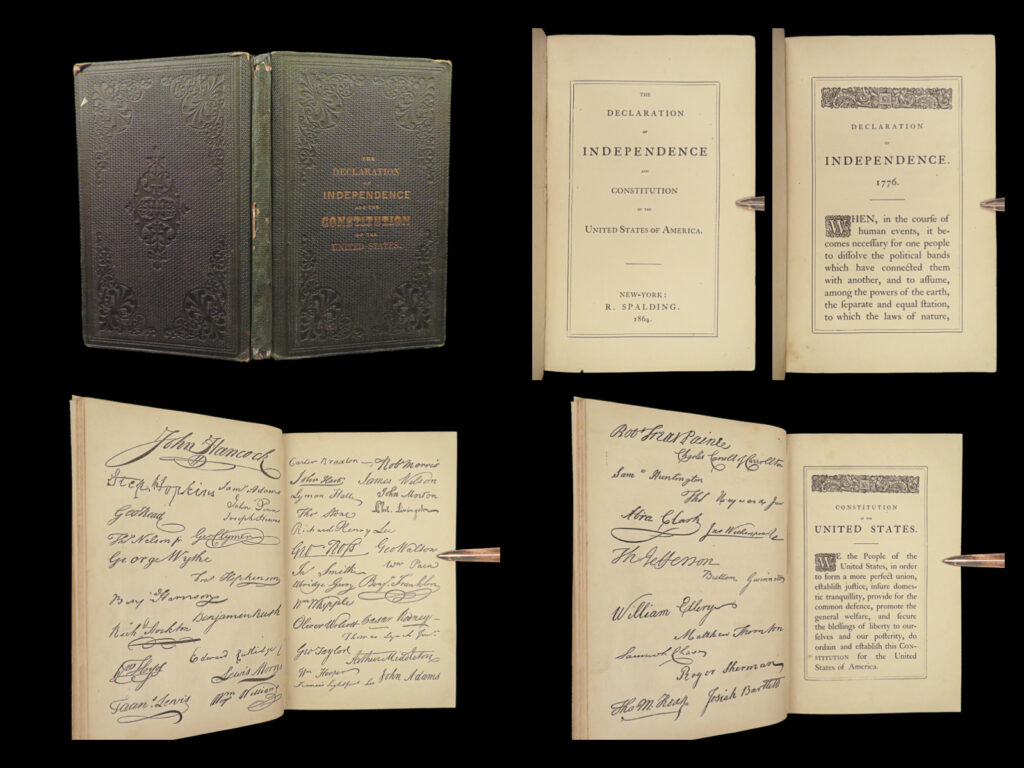 THE
DECLARATION
OF
INDEPENDENCE
AND THE
CONSTITUTION
OF THE
UNITED STATES.
THE
DECLARATION
OF
INDEPENDENCE
AND
CONSTITUTION
OF THE
UNITED STATES OF AMERICA.
NEW-YORK:
R. SPALDING.
1864.
DECLARATION
OF
INDEPENDENCE.
1776.
WHEN, in the courſe of
human events, it be-
comes neceſſary for one people
to diſſolve the political bands
which have connected them
with another, and to aſſume,
among the powers of the earth,
the ſeparate and equal ſtation,
to which the laws of nature,
John Hancock
Step. Hopkins
Saml Adams
Geo Read
John Penn
Thos Nelson jr
Geo Clymer
George Wythe
Fras Hopkinson
Benj Harrison
Benjamin Rush
Richd Stockton
Edward Rutledge
Lewis Morris
Frans Lewis
Wm Williams
Carter Braxton
Robt Morris
John Hart
James Wilson
Lyman Hall
John Morton
Thos Stone
Phil. Livingston
Richard Henry Lee
Geo Ross
Geo Walton
Jas Smith
Wm Paca
Elbridge Gerry
Benj. Franklin
Wm Whipple
Oliver Wolcott
Caesar Rodney
Thomas Lynch Junr
Geo Taylor
Arthur Middleton
Wm Hooper
Francis Lightfoot Lee
John Adams
Robt Treat Paine
Charles Carroll of Carrollton
Saml Huntington
Thos Heyward Junr
Abra Clark
Jno Witherspoon
Th Jefferson
Button Gwinnett
William Ellery
Matthew Thornton
Samuel Chase
Roger Sherman
Tho M. Kean
Josiah Bartlett
CONSTITUTION
OF THE
UNITED STATES.
WE the People of the
United States, in order
to form a more perfect union,
eſtabliſh juſtice, inſure domeſ-
tic tranquillity, provide for the
common defence, promote the
general welfare, and ſecure
the bleſſings of liberty to our-
ſelves and our poſterity, do
ordain and eſtabliſh this CON-
STITUTION for the United
States of America.